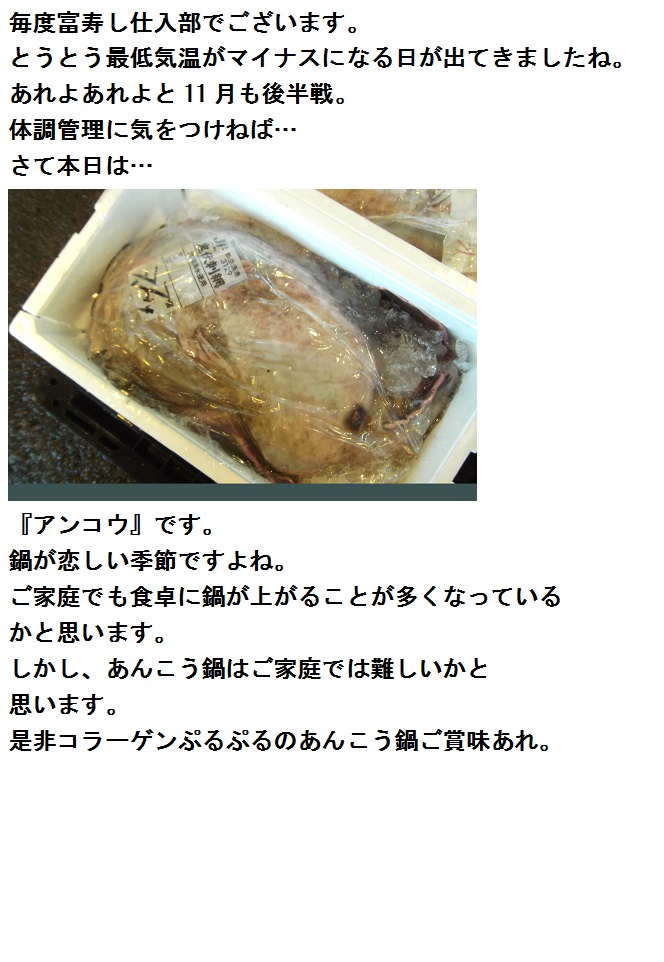 毎度富寿し仕入部でございます。
とうとう最低気温がマイナスになる日が出てきましたね。
あれよあれよと11月も後半戦。
体調管理に気をつけねば…
さて本日は…
『アンコウ』です。
鍋が恋しい季節ですよね。
ご家庭でも食卓に鍋が上がることが多くなっている
かと思います。
しかし、あんこう鍋はご家庭では難しいかと
思います。
是非コラーゲンぷるぷるのあんこう鍋ご賞味あれ。